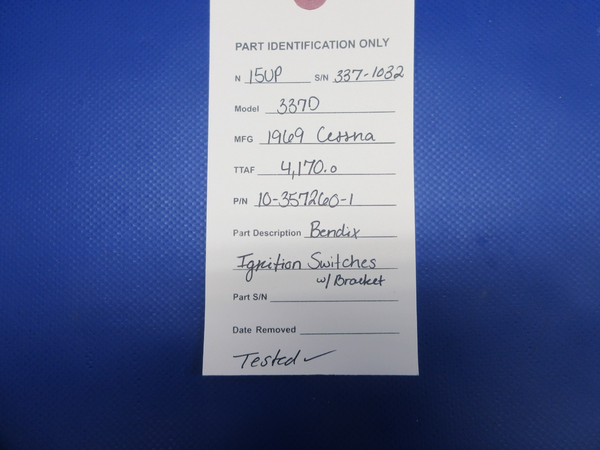 PART IDENTIFICATION ONLY
N 15UP S/N 337-1032
Model 337D
MFG 1969 Cessna
TTAF 4,170.0
P/N 10-357260-1
Part Description Bendix
Ignition Switches
w/ Bracket
Part S/N
Date Removed
Tested ✓